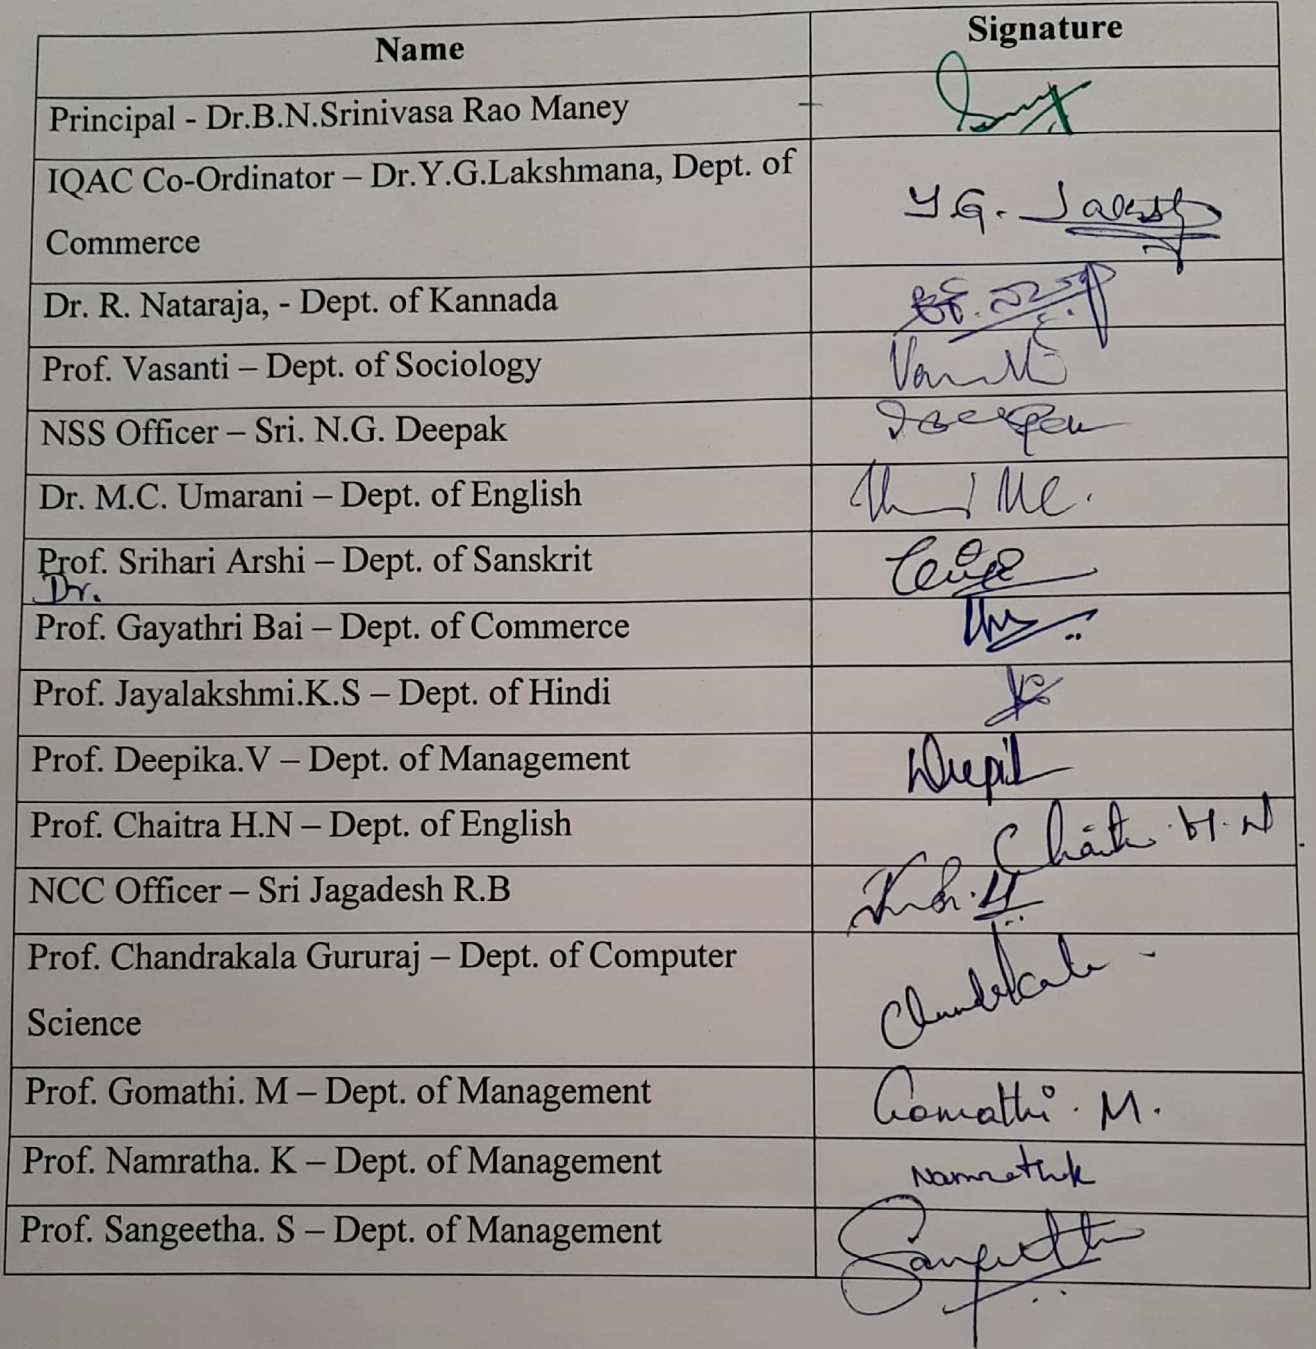 Name Signature
Principal - Dr.B.N.Srinivasa Rao Maney
IQAC Co-Ordinator – Dr.Y.G.Lakshmana, Dept. of
Commerce
Y G.
Dr. R. Nataraja, - Dept. of Kannada
Prof. Vasanti – Dept. of Sociology
NSS Officer – Sri. N.G. Deepak
Dr. M.C. Umarani – Dept. of English
Prof. Srihari Arshi – Dept. of Sanskrit
Dr.
Prof. Gayathri Bai – Dept. of Commerce
Prof. Jayalakshmi.K.S – Dept. of Hindi
Prof. Deepika.V – Dept. of Management
Prof. Chaitra H.N – Dept. of English H.N
NCC Officer – Sri Jagadesh R.B
Prof. Chandrakala Gururaj – Dept. of Computer
Science
Chandrakala
Prof. Gomathi. M – Dept. of Management Gomathi. M.
Prof. Namratha. K – Dept. of Management
Prof. Sangeetha. S – Dept. of Management